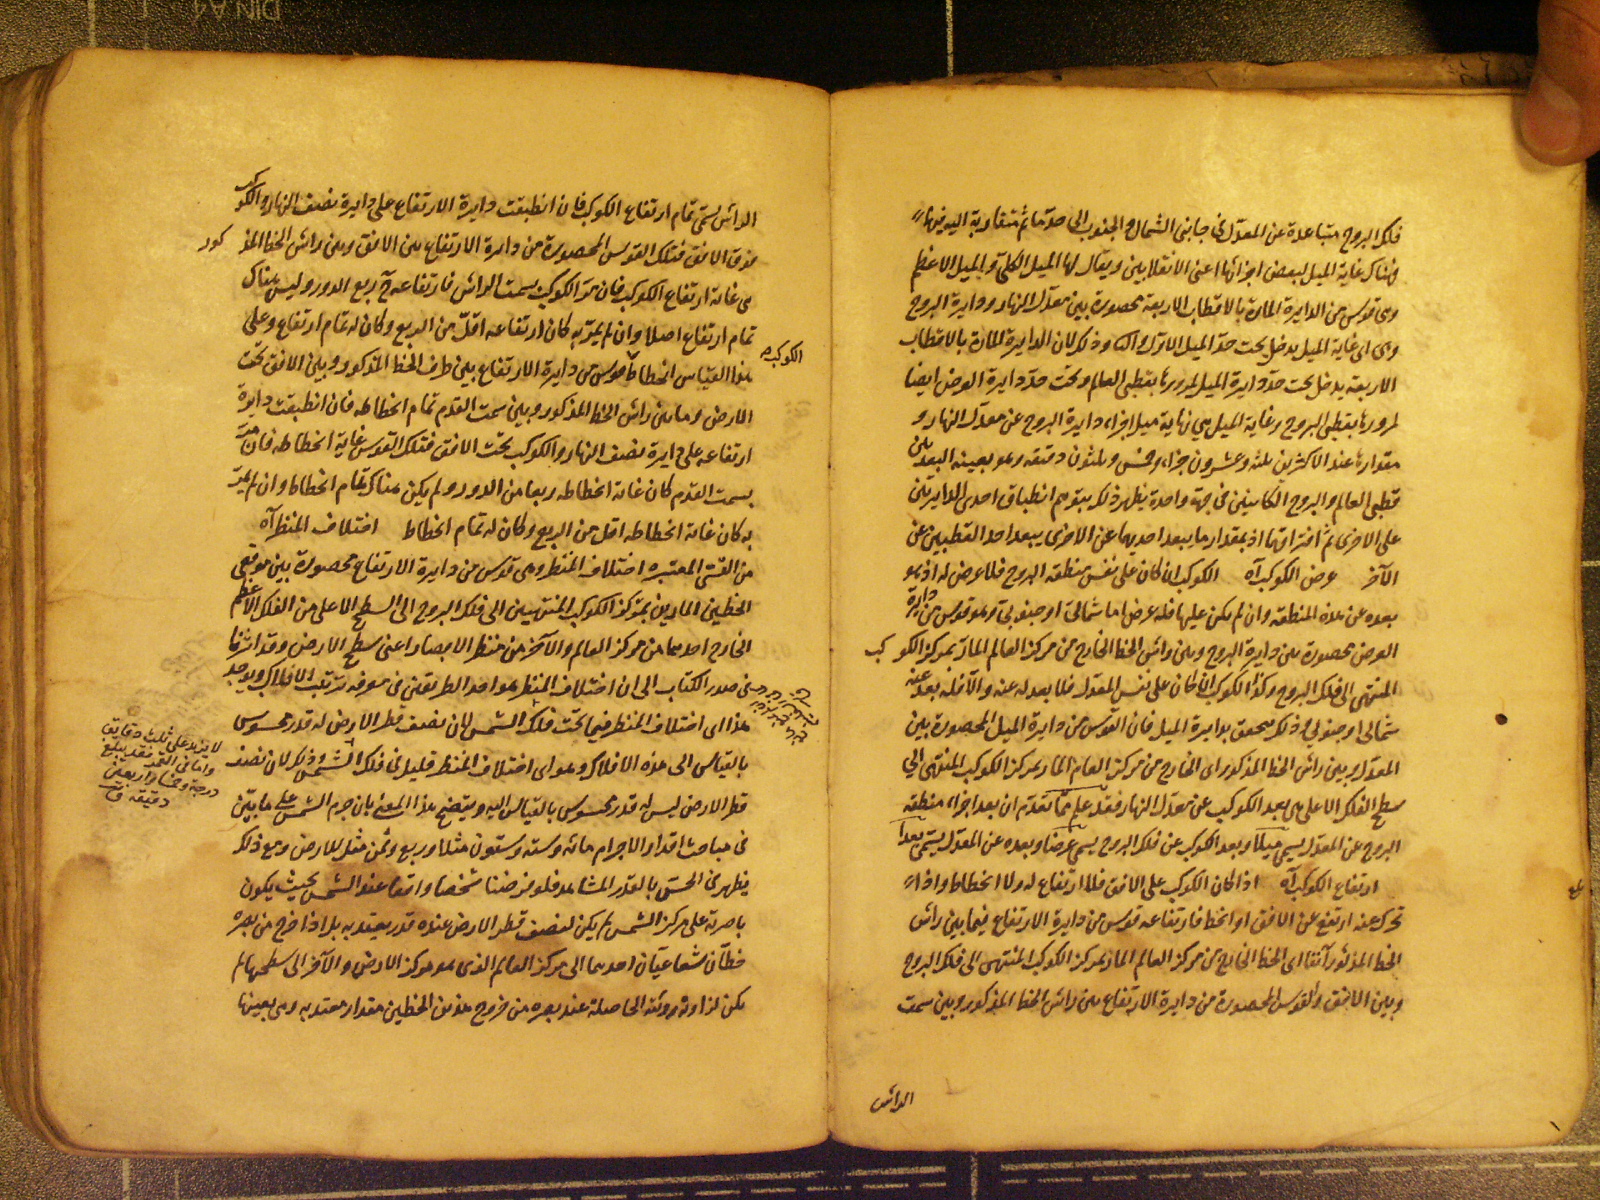 فلك البروج متباعدة عن المعدل في جانبي الشمال والجنوب الى حد ما ثم متقاربة اليه فيها
فهناك غاية الميل لبعض اجزائها اعني الانقلابين ويقال لها الميل الكلي والميل الاعظم
وهي قوس من الدايرة المارة بالاقطاب الاربعة محصورة بين معدل النهار ودايرة البروج
وهي اي غاية الميل يدخل تحت حد الميل الاول والثا وذلك لان الدايرة المارة بالاقطاب
الاربعة يدخل تحت حد دايرة الميل لمرورها بقطبي العالم وتحت حد دايرة العرض ايضا
لمرورها بقطبي البروج وغاية الميل هي نهاية ميل اجزاء دايرة البروج عن معدل النهار و
مقدارها عند الاكثرين ثلثة وعشرون جزاء وخمس وثلثون دقيقة وهو بعينه البعد بين
قطبي العالم والبروج الكاينين في جهة واحدة يظهر ذلك بتوهم انطباق احدى الدايرتين
على الاخرى ثم افتراقهما اذ بمقدار ما يبعد احديهما عن الاخرى يبعد احد القطبين عن
الآخر عرض الكوكب آه الكوكب ان كان على نفس منطقة البروج فلا عرض له اذ هو
بعده عن هذه المنطقة وان لم يكن عليها فله عرض اما شمالي او جنوبي وهو قوس من دايرة
العرض محصورة بين دايرة البروج وبين راس الخط الخارج من مركز العالم المار بمركز الكوكب
المنتهى الى فلك البروج وكذا الكوكب ان كان على نفس المعدل فلا بعد له عنه والا فله بعد عنه
شمالي او جنوبي وذلك يتحقق بدايرة الميل فان القوس من دايرة الميل المحصورة بين
المعدل وبين راس الخط المذكور اي الخارج من مركز العالم المار بمركز الكوكب المنتهى الي
سطح الفلك الاعلى هي بعد الكوكب عن معدل النهار فقد علم مما تقدم ان بعد اجزاء منطقة
البروج عن المعدل يسمى ميلا وبعد الكوكب عن فلك البروج يسمى عرضا وبعده عن المعدل يسمى بعدا
ارتفاع الكوكب آه اذا كان الكوكب على الافق فلا ارتفاع له ولا انحطاط واذا
تحرك عنه ارتفع عن الافق او انحط فارتفاعه قوس من دايرة الارتفاع فيما بين راس
الخط المذكور آنفا اي الخط الخارج من مركز العالم المار بمركز الكوكب المنتهى الى فلك البروج
وبين الافق والقوس المحصورة من دايرة الارتفاع بين راس الخط المذكور وبين سمت
الراس
الراس يسمى تمام ارتفاع الكوكب فان انطبقت دايرة الارتفاع على دايرة نصف النهار والكوكب
فوق الافق فتلك القوس المحصورة من دايرة الارتفاع بين الافق وبين راس الخط المذكور
هي غاية ارتفاع الكوكب فان مر الكوكب بسمت الراس فارتفاعه ح ربع الدور وليس هناك
تمام ارتفاع اصلا وان لم يمر به كان ارتفاعه اقل من الربع وكان له تمام ارتفاع وعلى
هذا القياس انحطاط قوس من دايرة الارتفاع بين طرف الخط المذكور وبين الافق تحت
الكوكب
الارض وما بين راس الخط المذكور وبين سمت القدم تمام انحطاطه فان انطبقت دايرة
ارتفاعه على دايرة نصف النهار والكوكب تحت الافق فتلك القوس غاية انحطاطه فان مر
بسمت القدم كان غاية انحطاطه ربعا من الدور ولم يكن هناك تمام انحطاط وان لم يمر
به كان غاية انحطاطه اقل من الربع وكان له تمام انحطاط اختلاف المنظر آه
من القسي المعتبره اختلاف المنظر وهي قوس من دايرة الارتفاع محصورة بين موقعي
الخطين المارين بمركز الكوكب المنتهيين الى فلك البروج الى السطح الاعلى من الفلك الاعظم
الخارج احدهما من مركز العالم والآخر من منظر الابصار اعني سطح الارض وقد اشرنا
في صدر الكتاب الى ان اختلاف المنظر هو احد الطريقتين في معرفة ترتيب الافلاك ويوجد
هذا اي اختلاف المنظر فيما تحت فلك الشمس لان نصف قطر الارض له قدر محسوس
بالقياس الى هذه الافلاك وهو اي اختلاف المنظر قليل في فلك الشمس وذلك لان نصف
لا يزيد على ثلث دقايق
واما في القمر فقد يبلغ
درجة وخمسا واربعين
دقيقة
قطر الارض ليس له قدر محسوس بالقياس اليه ويتضح هذا المعنى بان جرم الشمس على ما يبين
في مباحث اقدار الاجرام مائه وسته وستون مثلا وربع وثمن مثل للارض ومع ذلك
يظهر في الحس بالقدر المشاهد فلو فرضنا شخصا واقفا عند الشمس بحيث يكون
باصرته على مركز الشمس لم يكن لنصف قطر الارض عنده قدر يعتد به بل اذا خرج من بصره
خطان شعاعيان احدهما الى مركز العالم الذى هو مركز الارض والآخر الى سطحها لم
يكن لزاوية رؤيته الحاصلة عند بصره من خروج هذين الخطين مقدار معتد به وهي بعينها